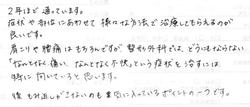 2年ほど通っています。
症状や各位にあわせて様々な方法で治療してもらえるのが
良いです。
肩こりや腰痛はもちろんですが、整形外科では、どうにもならない
「なんとなく痛い、なんとなく不快」という症状を治すには、
特に向いていると思います。
後もみ返しがこないのも気に入っているポイントの一つです。